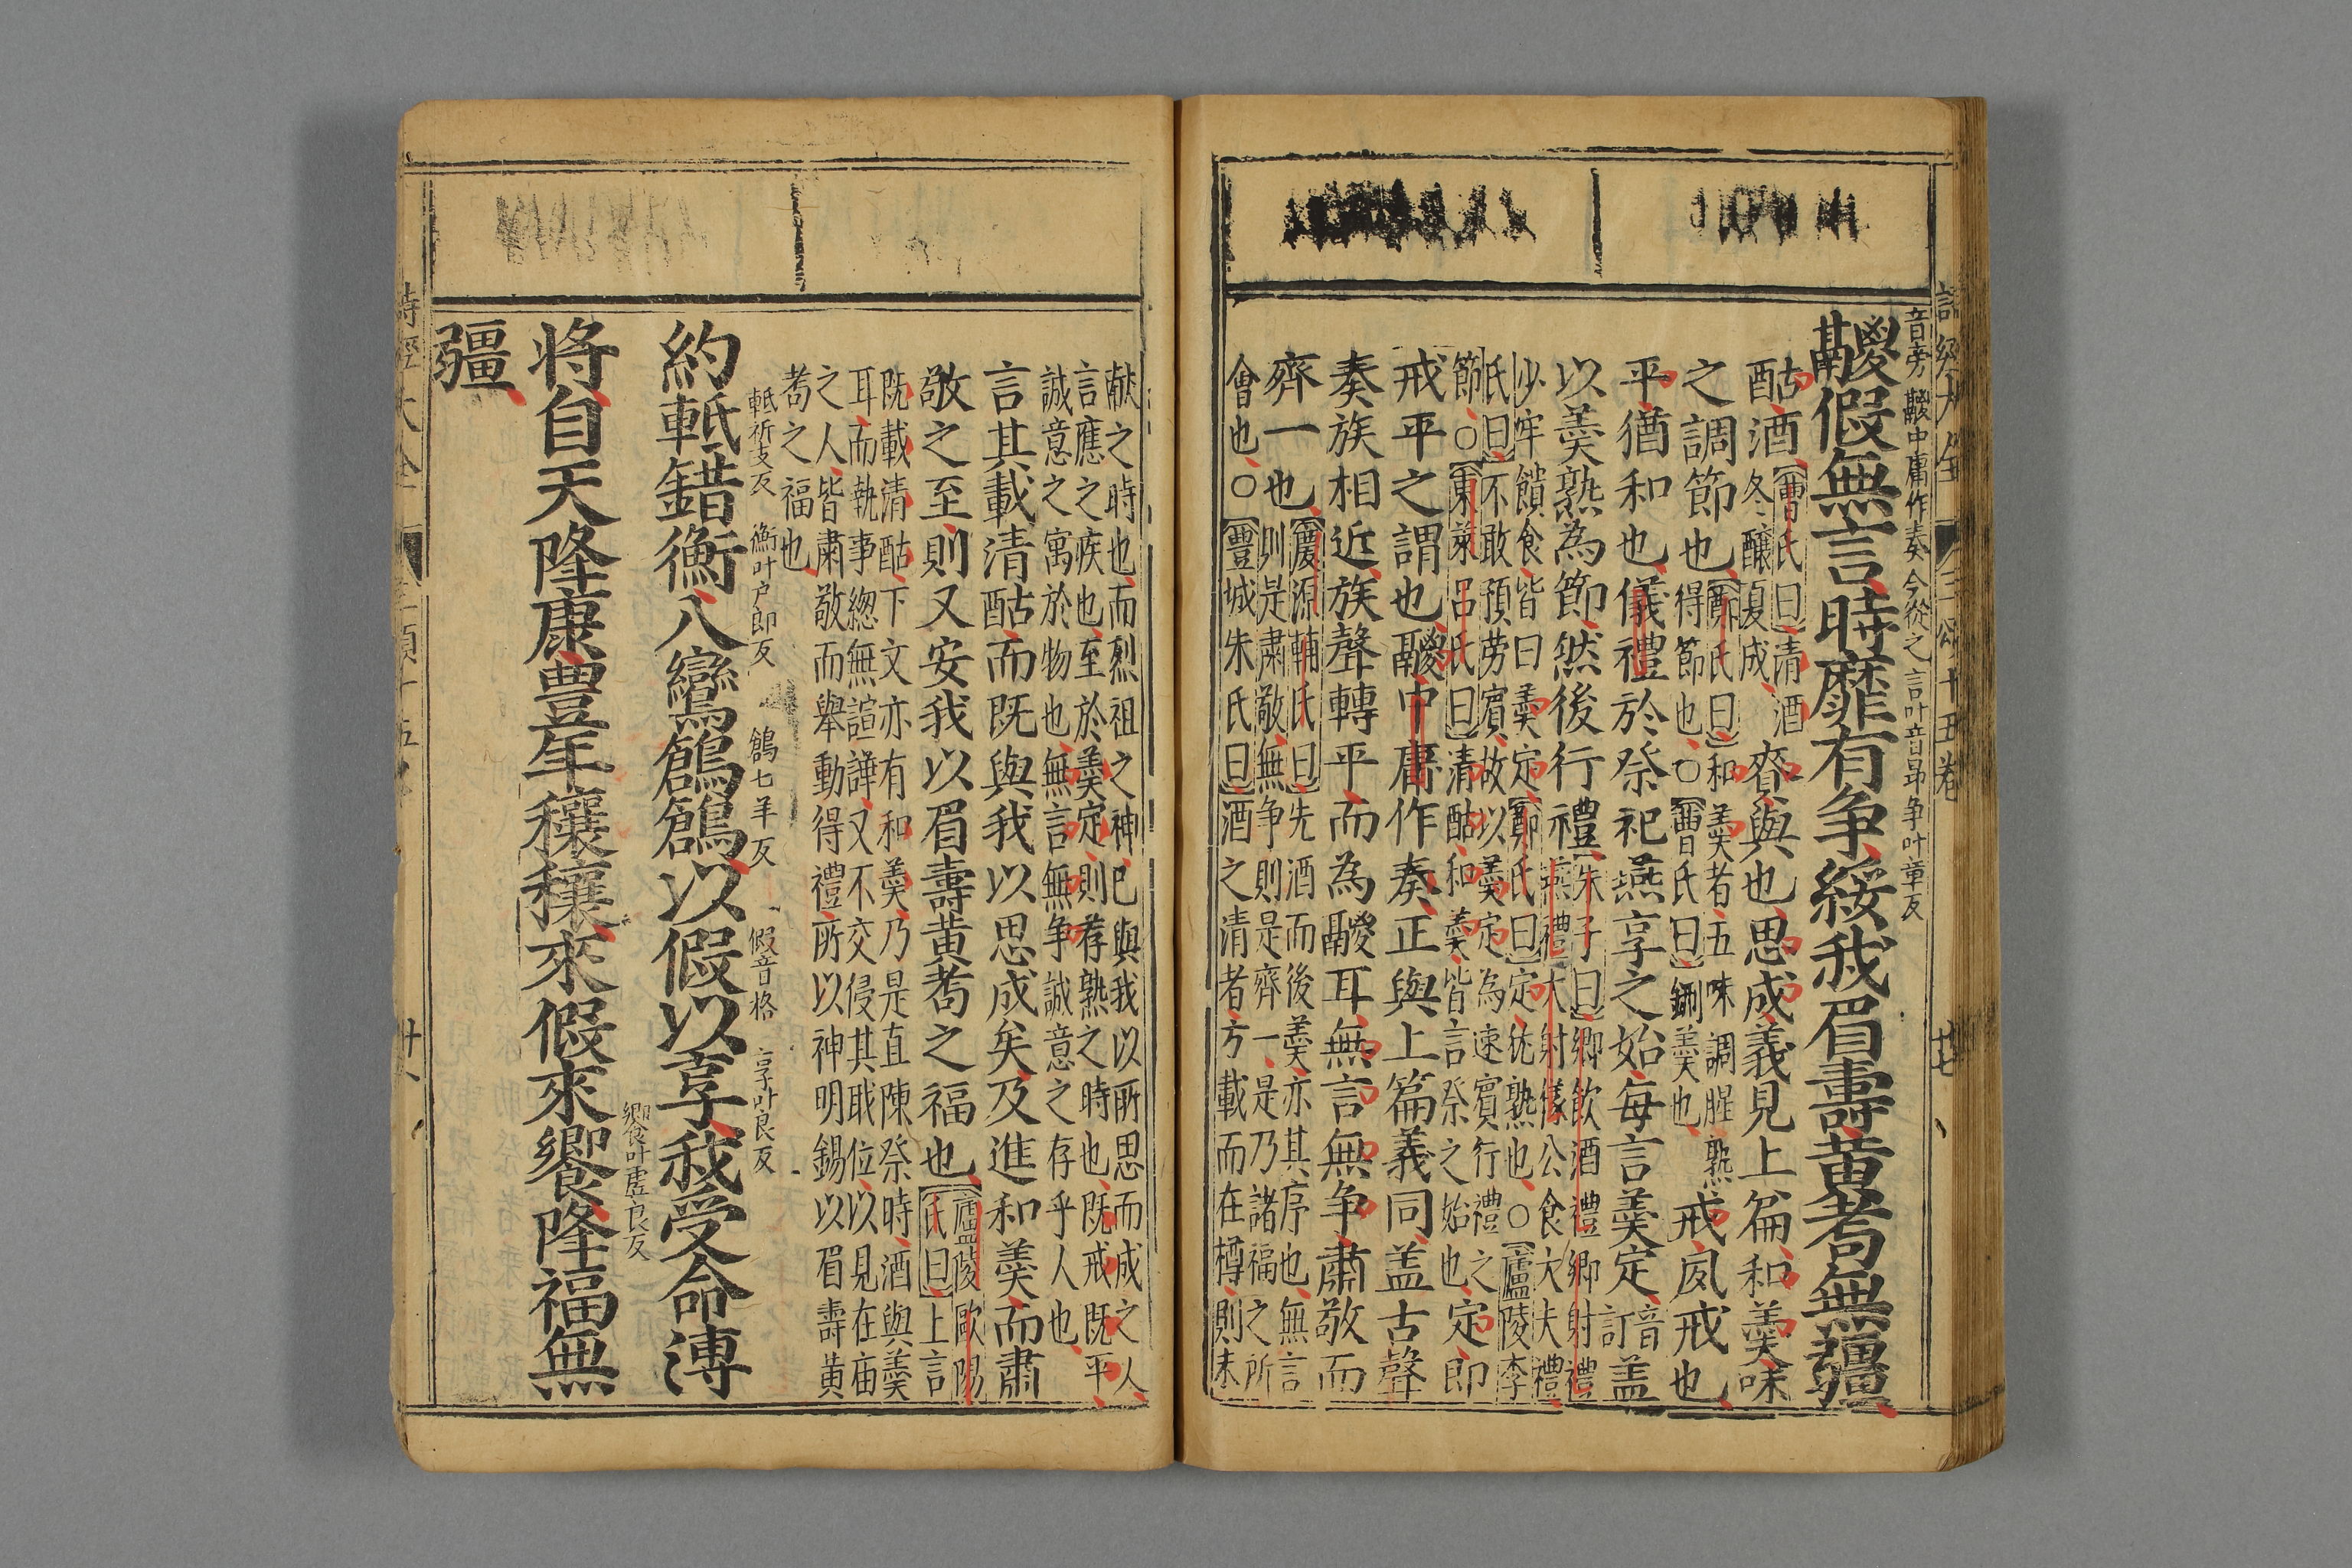 詩經大全 三頌十五卷 廿七
音旁 鬷中庸作奏今從之 言叶音昂 争叶章反
鬷假無言時靡有争綏我眉壽黃耇無疆
酤酒曹氏曰清酒冬釀夏成賚與也思成義見上篇和羹味
之調節也鄭氏曰和羹者五味調腥熟得節也○曹氏曰鉶羹也戒夙戒也
平猶和也儀禮於祭祀燕享之始每言羹定音訂盖
以羹熟為節然後行禮朱子曰鄉飲酒禮鄉射禮燕禮大射儀公食大夫禮
少牢饋食皆曰羹定鄭氏曰定猶熟也○廬陵李
氏曰不敢預勞賓故以羹定為速賓行禮之
節○東萊呂氏曰清酤和羹皆言祭之始也定即
戒平之謂也鬷中庸作奏正與上篇義同盖古聲
奏族相近族聲轉平而為鬷耳無言無争肅敬而
齊一也慶源輔氏曰先酒而後羹亦其序也無言則是肅敬無争則是齊一是乃諸福之所
會也○豐城朱氏曰酒之清者方載而在樽則未
獻之時也而烈祖之神已與我以所思而成之人
言應之疾也至於羹定則荐熟之時也既戒既平
誠意之寓於物也無言無争誠意之存乎人也
言其載清酤而既與我以思成矣及進和羹而肅
敬之至則又安我以眉壽黃耇之福也廬陵歐陽氏曰上言
既載清酤下文亦有和羹乃是直陳祭時酒與羹
耳而執事緫無諠譁又不交侵其職位以見在庙
之人皆肅敬而舉動得禮所以神明錫以眉壽黃
耇之福也
軝祈支反 衡叶户郎反 鶬七羊反 假音格 享叶良反
約軝錯衡八鸞鶬鶬以假以享我受命溥
饗叶虚良反
将自天降康豊年穰穰來假來饗降福無
疆
詩經大全 三頌十五卷 廿八